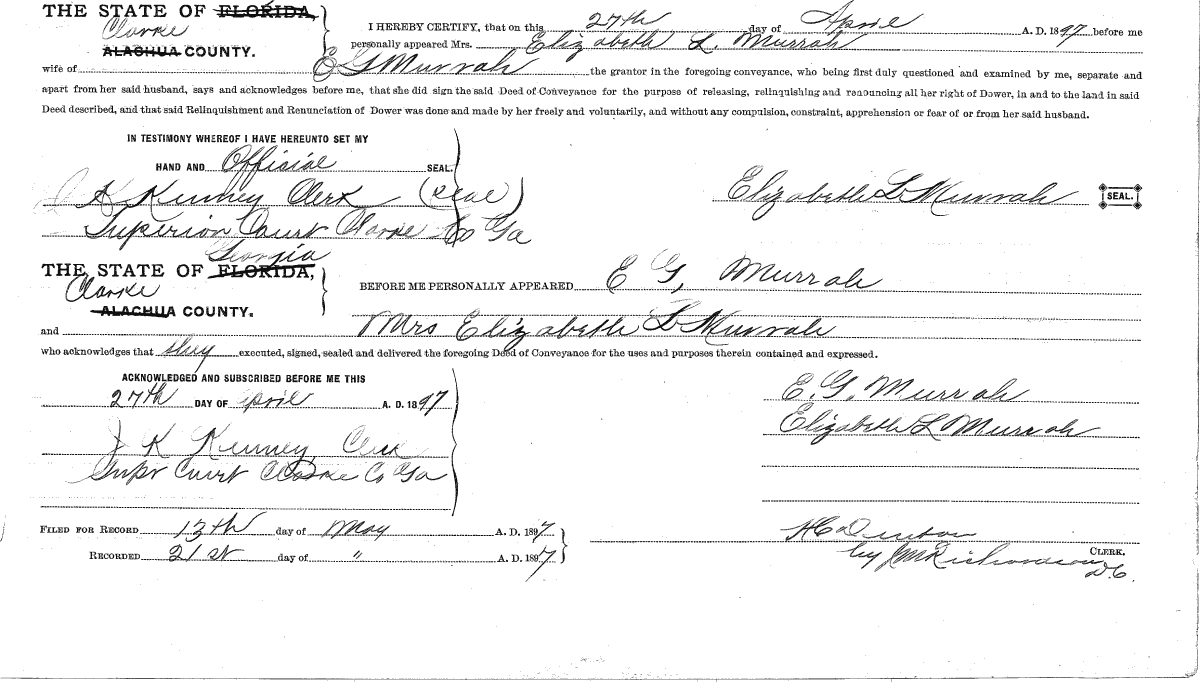 THE STATE OF FLORIDA,
Clarke
ALACHUA COUNTY.
I HEREBY CERTIFY, that on this 27th day of April A. D. 1897 before me
personally appeared Mrs. Elizabeth L. Murrah
wife of E G Murrah the grantor in the foregoing conveyance, who being first duly questioned and examined by me, separate and
apart from her said husband, says and acknowledges before me, that she did sign the said Deed of Conveyance for the purpose of releasing, relinquishing and renouncing all her right of Dower, in and to the land in said
Deed described, and that said Relinquishment and Renunciation of Dower was done and made by her freely and voluntarily, and without any compulsion, constraint, apprehension or fear of or from her said husband.
IN TESTIMONY WHEREOF I HAVE HEREUNTO SET MY
HAND AND Official SEAL.
J K Kenney Clerk (seal)
Superior Court Clarke Co Ga
Elizabeth L Murrah SEAL.
Georgia
THE STATE OF FLORIDA,
Clarke
ALACHUA COUNTY.
BEFORE ME PERSONALLY APPEARED E G, Murrah
and Mrs Elizabeth L Murrah
who acknowledges that they executed, signed, sealed and delivered the foregoing Deed of Conveyance for the uses and purposes therein contained and expressed.
ACKNOWLEDGED AND SUBSCRIBED BEFORE ME THIS
27th DAY OF April A. D. 1897
J K Kenney, Clerk
Supr Court Clarke Co Ga
E. G. Murrah
Elizabeth L Murrah
FILED FOR RECORD 13th day of May A. D. 1897
RECORDED 21st day of " A. D. 1897
H C Denton
CLERK.
by J M Richardson
D. C.